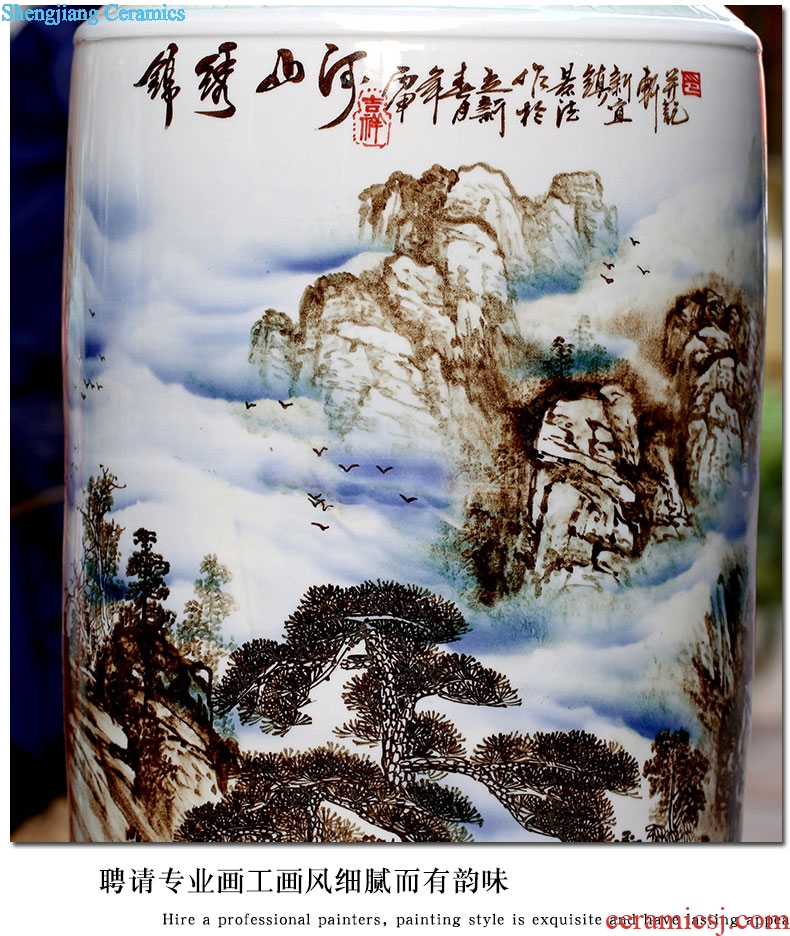 Shengjiang Ceramics
锦绣山河
吉祥
丙申年春月
立新
作於
景德
镇
新宜
轩
并记
聘请专业画工画风细腻而有韵味
Hire a professional painters, painting style is exquisite and have lasting appea
ceramicsj.com/French